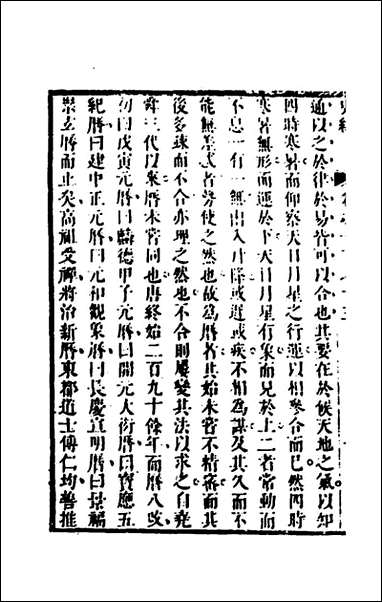 通以之於律於易皆可以合也其要在於候天地之氣以知
四時寒暑而仰察天日月星之行運以相參合而已然四時
寒暑無形而運於下天日月星有象而見於上二者常動而
不息一有一無出入升降或遲或疾不相為謀及其久而不
能無差忒者勢使之然也故為曆者其始未嘗不精密而其
後多疎而不合亦理之然也不合則屢變其法以求之自堯
舜三代以來曆未嘗同也唐終始二百九十餘年而曆八改
初曰戊寅元曆曰麟德甲子元曆曰開元大衍曆曰寶應五
紀曆曰建中正元曆曰元和觀象曆曰長慶宣明曆曰景福
崇玄曆而止矣高祖受禪將治新曆東都道士傅仁均善推